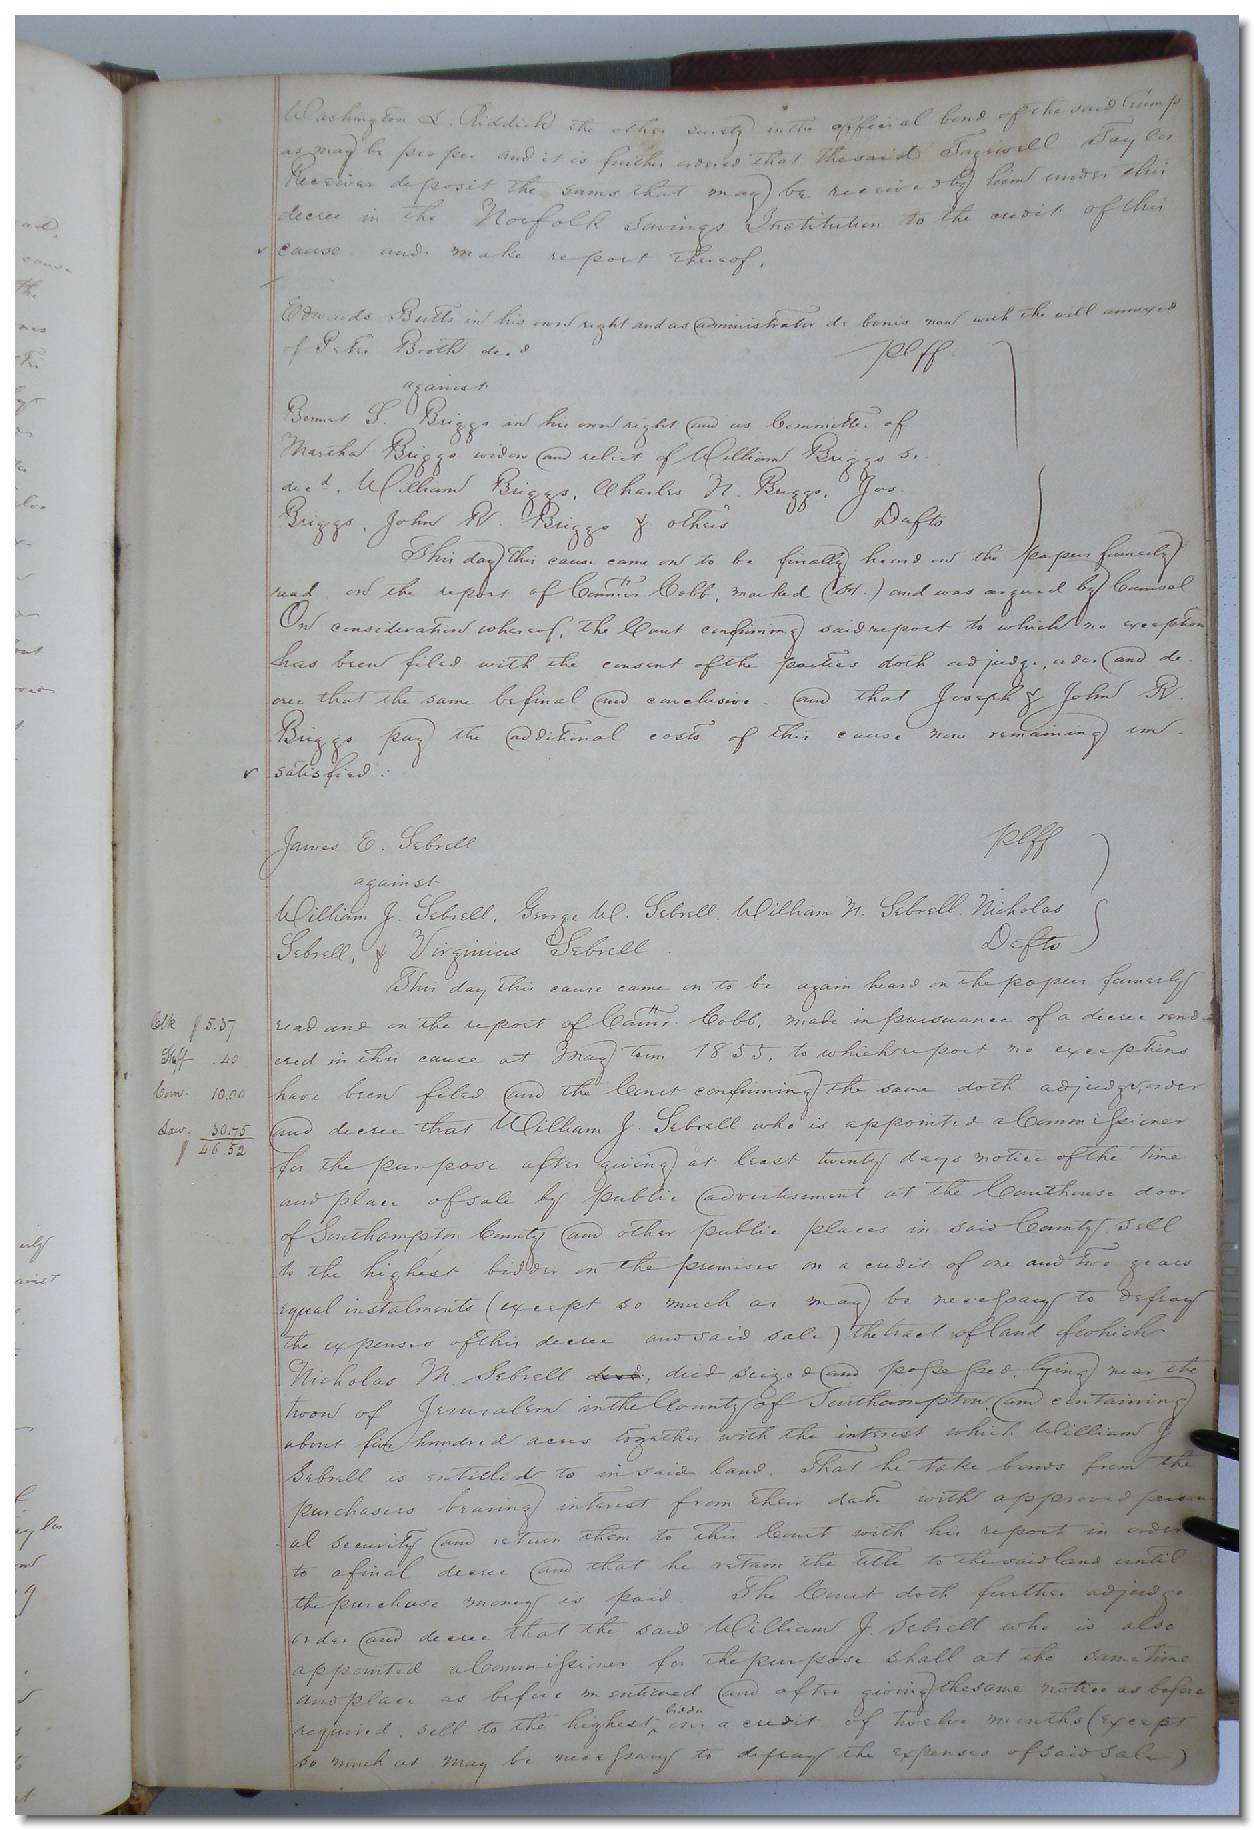 Washington L. Riddick the other surety in the official bond of the said Crump
as may be proper and it is further ordered that the said Tazewell Taylor
Receiver deposit the sums that may be received by him under this
decree in the Norfolk Savings Institution to the credit of this
cause and make report thereof.
Edwards Butts in his own right and as administrator de bonis non with the will annexed
of Peter Booth decd Plff
against
Bennet S. Briggs in his own right and as Committee of
Martha Briggs widow and relict of William Briggs Sr.
decd. William Briggs, Charles N. Briggs, Jos.
Briggs, John R. Briggs & others Defts
This day this cause came on to be finally heard on the papers formerly
read, on the report of Commr Cobb, marked ( ) and was argued by Counsel
On consideration whereof, the Court confirming said report to which no exception
has been filed with the consent of the parties doth adjudge, order and de-
cree that the same be final and conclusive and that Joseph & John R.
Briggs pay the additional costs of this cause now remaining un-
satisfied.
James E. Sebrell Plff
against
William J. Sebrell, George W. Sebrell, William N. Sebrell Nicholas
Sebrell, & Virginius Sebrell Defts
This day this cause came on to be again heard on the papers formerly
Clk $5.37
read and on the report of Commr. Cobb, made in pursuance of a decree rend-
Shff .40
ered in this cause at May term 1855, to which report no exceptions
Com. 10.00
have been filed and the Court confirming the same doth adjudge, order
Law. 30.75
and decree that William J. Sebrell who is appointed a Commissioner
$46.52
for the purpose after giving at least twenty days notice of the time
and place of sale by public advertisement at the Courthouse door
of Southampton County and other public places in said County sell
to the highest bidder on the premises on a credit of one and two years
equal instalments (except so much as may be necessary to defray
the expenses of this decree and said sale) the tract of land of which
Nicholas M. Sebrell decd, died seized and possessed, lying near the
town of Jerusalem in the County of Southampton and containing
about five hundred acres together with the interest which William J.
Sebrell is entitled to in said land. That he take bonds from the
purchasers bearing interest from their date with approved person-
al security and return them to this Court with his report in order
to a final decree and that he retain the title to the said land until
the purchase money is paid The Court doth further adjudge
order and decree that the said William J. Sebrell who is also
appointed a Commissioner for the purpose shall at the same time
and place as before mentioned and after giving the same notice as before
required, sell to the highest bidder on a credit of twelve months (except
so much as may be necessary to defray the expenses of said sale)